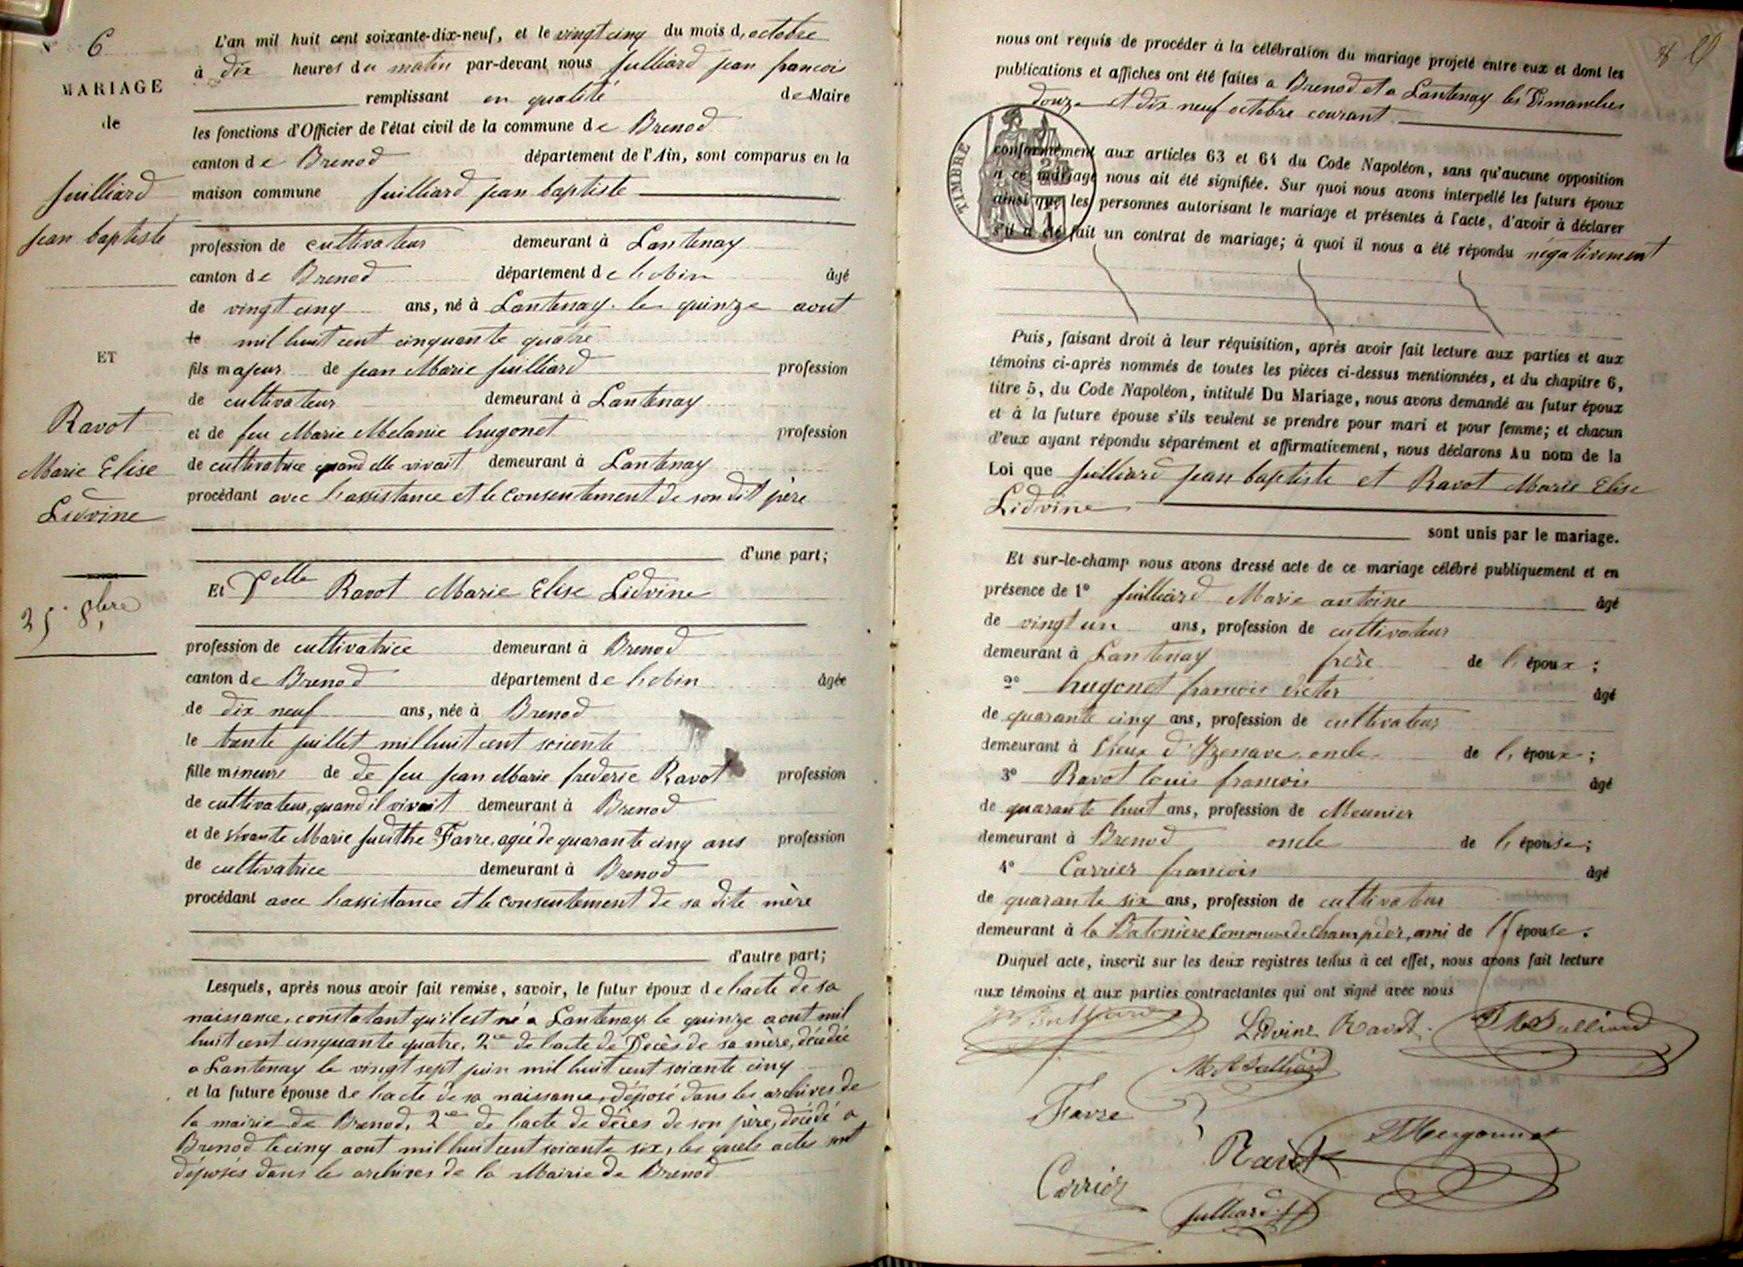 N° 6
MARIAGE
de
Juilliard
Jean baptiste
ET
Ravot
Marie Elise
Lidvine
25. 8bre
L'an mil huit cent soixante-dix-neuf, et le vingt cinq du mois d, octobre
à dix heures du matin par-devant nous Julliard jean francois
remplissant en qualité de Maire
les fonctions d'Officier de l'état civil de la commune de Brenod
canton de Brenod département de l'Ain, sont comparus en la
maison commune Juilliard jean baptiste
profession de cultivateur demeurant à Lantenay
canton de Brenod département de l'ain âgé
de vingt cinq ans, né à Lantenay le quinze aout
le mil huit cent cinquante quatre
fils majeur de jean Marie Juilliard profession
de cultivateur demeurant à Lantenay
et de feu Marie Melanie hugonet profession
de cultivatrice quand elle vivait demeurant à Lantenay
procédant avec l'assistance et le consentement de son dit père
d'une part;
Et Delle Ravot Marie Elise Lidvine
profession de cultivatrice demeurant à Brenod
canton de Brenod département de l'ain âgée
de dix neuf ans, née à Brenod
le trente juillet mil huit cent soixente
fille mineure de de feu Jean Marie frederic Ravot profession
de cultivateur, quand il vivait demeurant à Brenod
et de vivante Marie Judithe Favre, agée de quarante cinq ans profession
de cultivatrice demeurant à Brenod
procédant avec l'assistance et le consentement de sa dite mère
d'autre part;
Lesquels, après nous avoir fait remise, savoir, le futur époux de l'acte de sa
naissance, constatant qu'il est né a Lantenay le quinze aout mil
huit cent cinquante quatre, 2° de l'acte de Décès de sa mère, décédée
a Lantenay le vingt sept juin mil huit cent soixante cinq
et la future épouse de l'acte de sa naissance, déposé dans les archives de
la mairie de Brenod, 2° de l'acte de décès de son père, décédé a
Brenod le cinq aout mil huit cent soixante six, les quels actes sont
déposés dans les archives de la Mairie de Brenod
nous ont requis de procéder à la célébration du mariage projeté entre eux et dont les
publications et affiches ont été faites a Brenod et a Lantenay les Dimanches
douze et dix neuf octobre courant
TIMBRE
conformément aux articles 63 et 64 du Code Napoléon, sans qu'aucune opposition
à ce mariage nous ait été signifiée. Sur quoi nous avons interpellé les futurs époux
ainsi que les personnes autorisant le mariage et présentes à l'acte, d'avoir à déclarer
s'il a été fait un contrat de mariage; à quoi il nous a été répondu négativement
Puis, faisant droit à leur réquisition, après avoir fait lecture aux parties et aux
témoins ci-après nommés de toutes les pièces ci-dessus mentionnées, et du chapitre 6,
titre 5, du Code Napoléon, intitulé Du Mariage, nous avons demandé au futur époux
et à la future épouse s'ils veulent se prendre pour mari et pour femme; et chacun
d'eux ayant répondu séparément et affirmativement, nous déclarons Au nom de la
Loi que Juilliard jean baptiste et Ravot Marie Elise
Lidvine
sont unis par le mariage.
Et sur-le-champ nous avons dressé acte de ce mariage célébré publiquement et en
présence de 1° Juilliard Marie antoine âgé
de vingt un ans, profession de cultivateur
demeurant à Lantenay frère de l'époux;
2° hugonet francois victor âgé
de quarante cinq ans, profession de cultivateur
demeurant à d'Izenave oncle de l'époux;
3° Ravot louis francois âgé
de quarante huit ans, profession de Meunier
demeurant à Brenod oncle de l'épouse;
4° Carrier francois âgé
de quarante six ans, profession de cultivateur
demeurant à la Balonière Commune de Champdor, ami de l'épouse.
Duquel acte, inscrit sur les deux registres tenus à cet effet, nous avons fait lecture
aux témoins et aux parties contractantes qui ont signé avec nous
Lidvine Ravot
J M Julliard
M A Julliard
Favre
Ravot
Carrier
Julliard